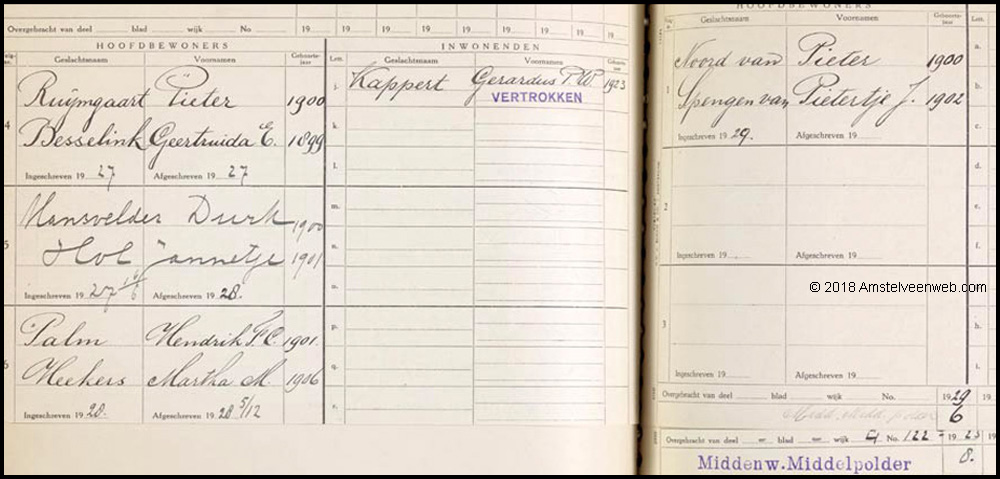 Overgebracht van deel blad wijk No. 19 19 19 19 19 19 19
HOOFDBEWONERS INWONENDEN
Geslachtsnaam Voornamen Geboorte-jaar Lett. Geslachtsnaam Voornamen
Ruijmgaart Pieter 1900
j. Kappert Gerardus T.W. 1923
VERTROKKEN
4
Besselink Geertruida E. 1899
k.
l.
Ingeschreven 19 27 Afgeschreven 19 27
Mansvelder Durk 1900
m.
5
n.
Hol Jannetje 1901
o.
Ingeschreven 19 27 Afgeschreven 19 28.
Palm Hendrik F.C. 1901.
p.
6
Heekers Martha M. 1906
q.
r.
Ingeschreven 19 28. Afgeschreven 19 28 5/12
HOOFDBEWONERS
Geslachtsnaam Voornamen Geboorte-jaar Lett.
a.
Noord van Pieter 1900
b.
1
Spengen van Pietertje J. 1902
c.
Ingeschreven 19 29. Afgeschreven 19
d.
2
e.
f.
Ingeschreven 19 Afgeschreven 19
© 2018 Amstelveenweb.com
3
h.
i.
Ingeschreven 19 Afgeschreven 19
Overgebracht van deel blad wijk No. 19 29 19
6
Overgebracht van deel blad wijk G No. 122 19 23 19
8.
Middenw. Middelpolder